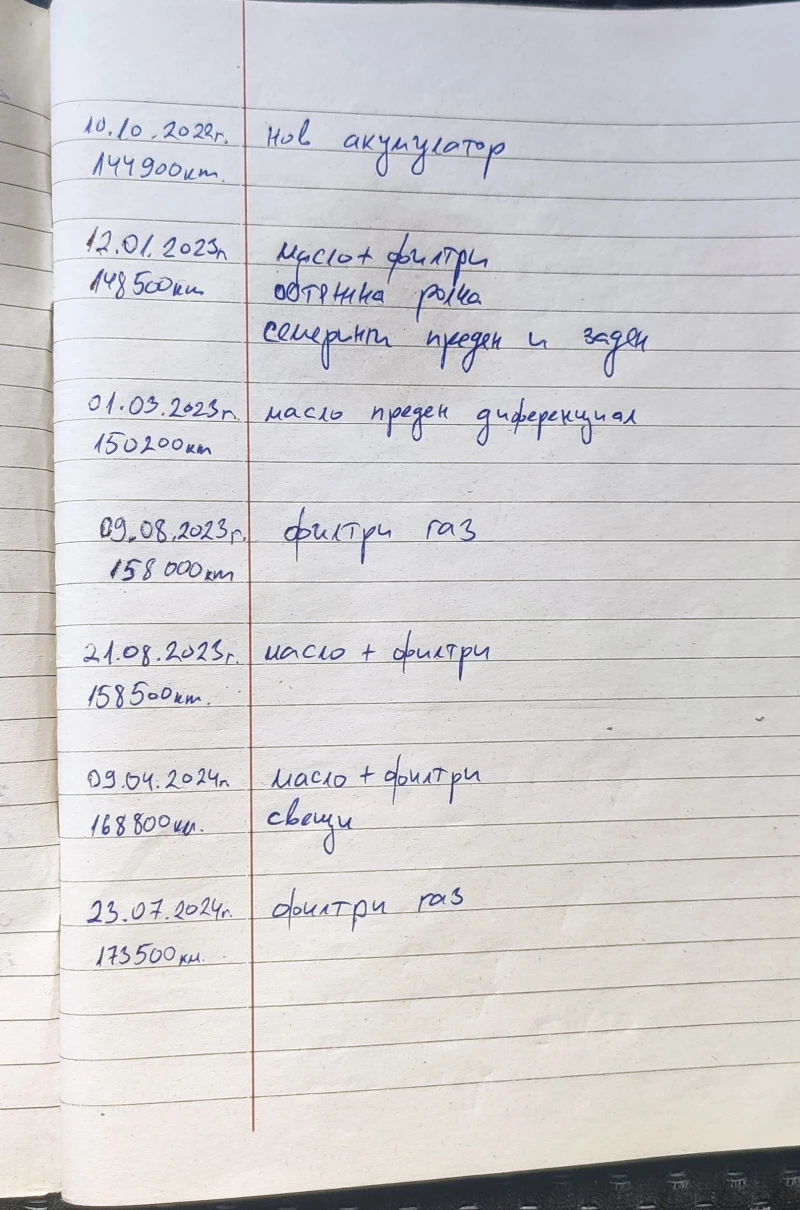 10.10.2022г. нов акумулатор
144900км.
12.01.2023г. масло + филтри
148500км обтяжна ролка
семеринги преден и заден
01.03.2023г. масло преден диференциал
150200км
09.08.2023г. филтри газ
158000км
21.08.2023г. масло + филтри
158500км.
09.04.2024г. масло + филтри
168800км. свещи
23.07.2024г. филтри газ
173500км.